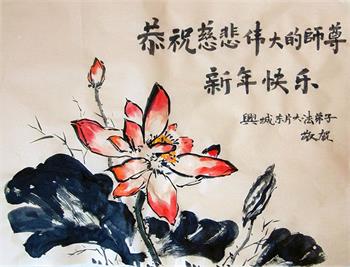 恭祝慈悲伟大的師尊
新年快乐
興城东片大法弟子
敬献